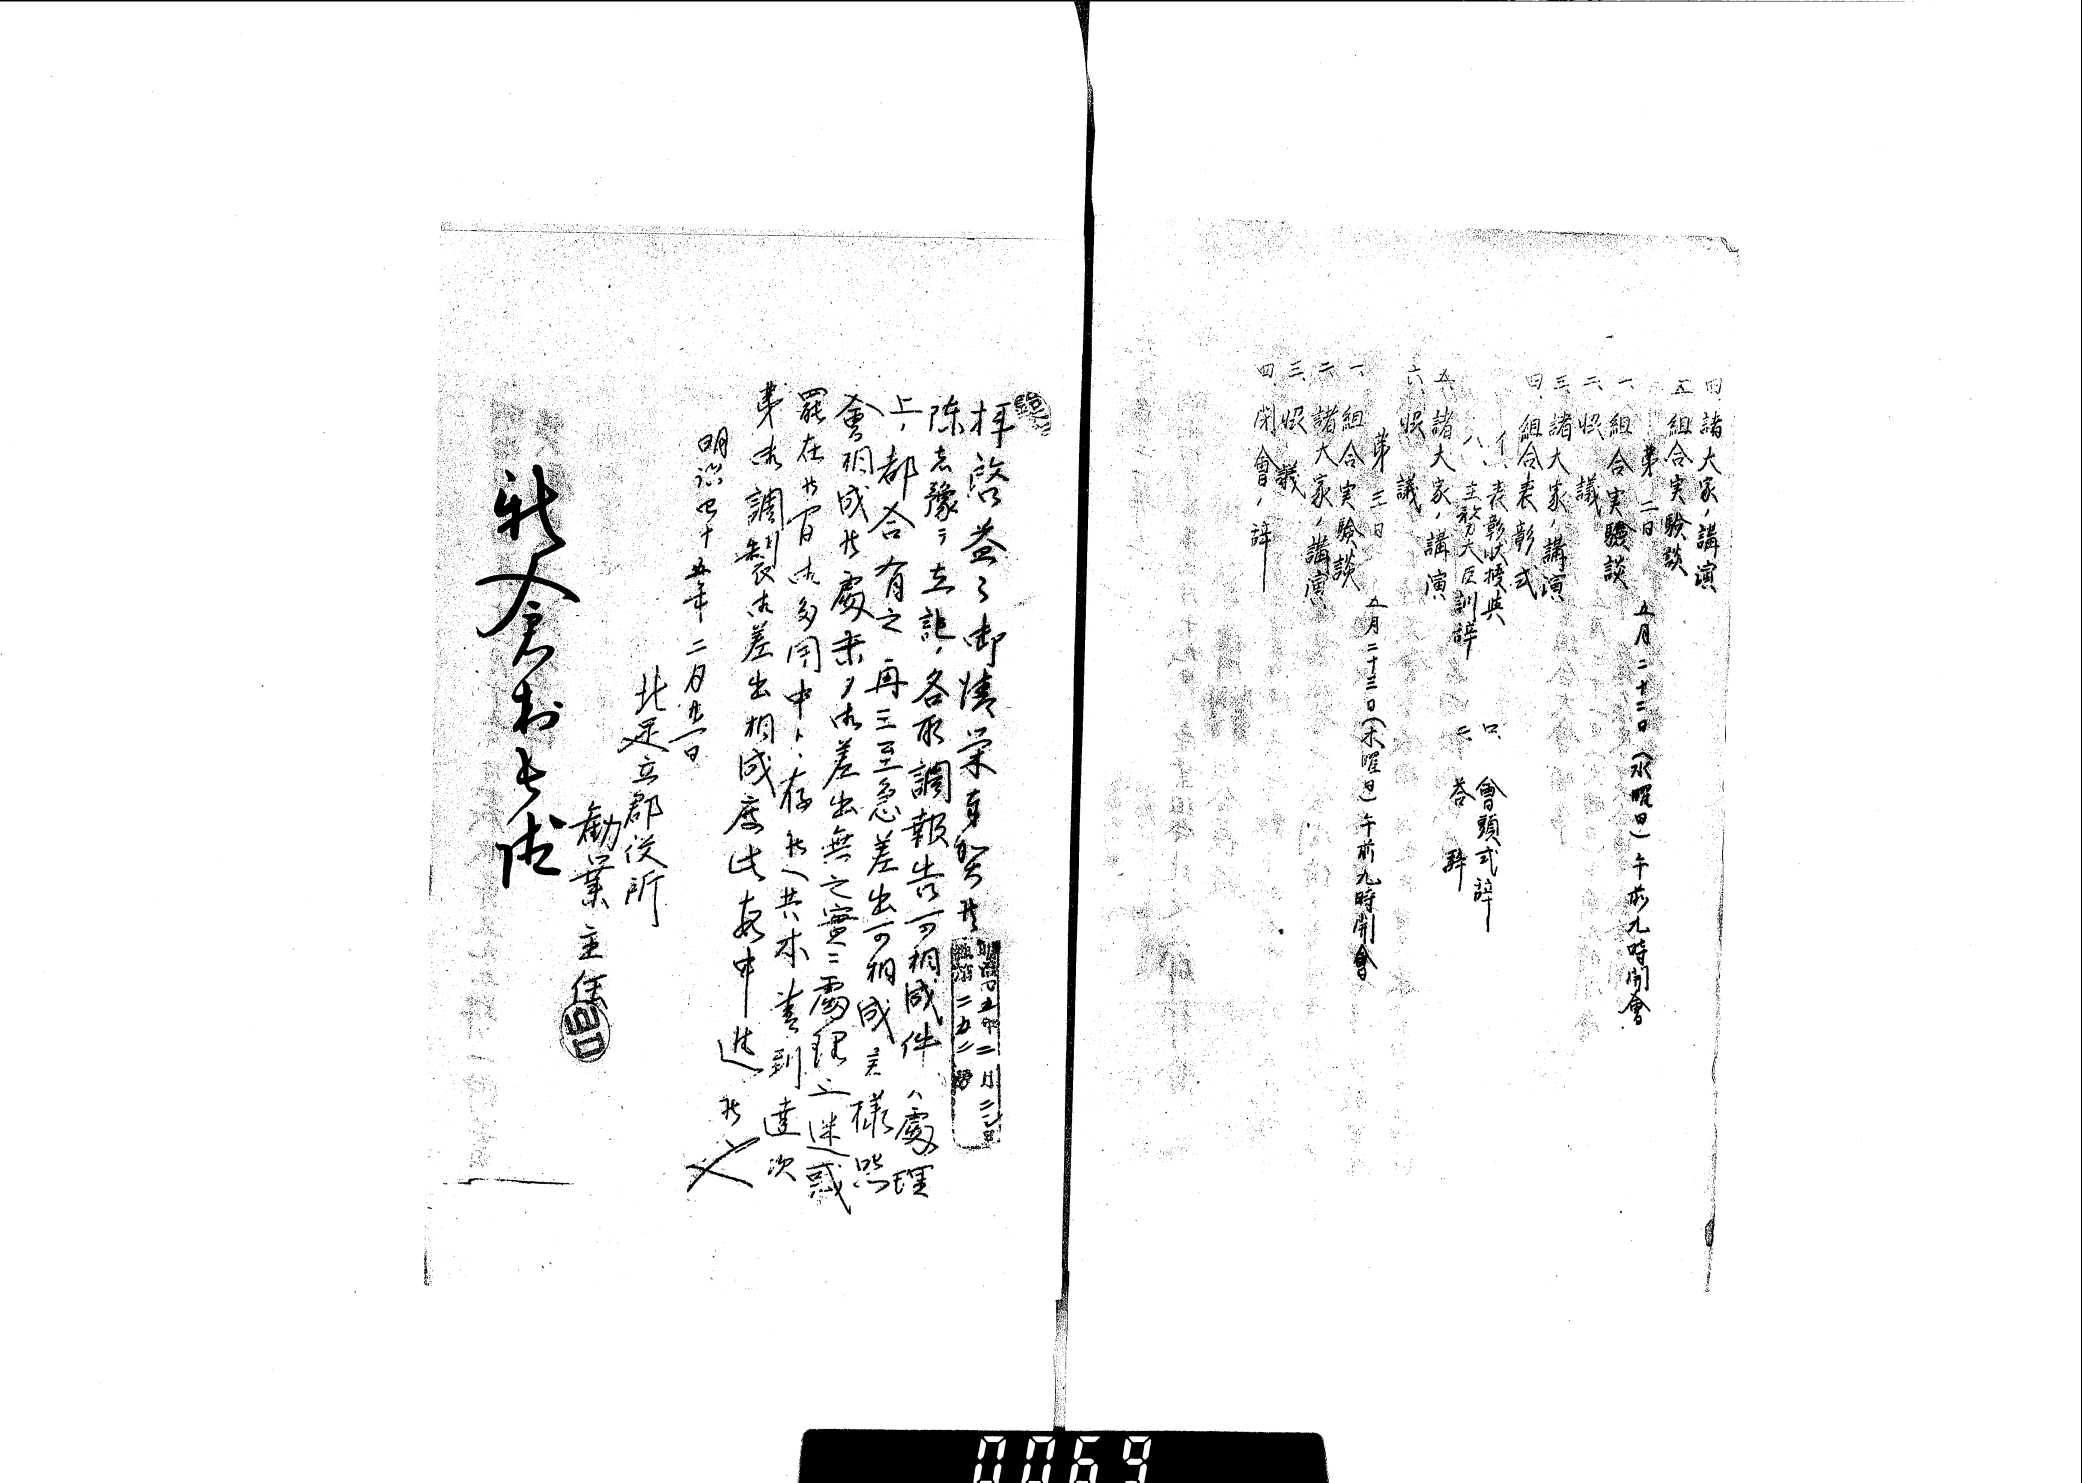 四、諸大家ノ講演
五、組合実験談
第二日 五月二十二日(水曜日)午前九時開會
一、組合実験談
二、協議
三、諸大家ノ講演
四、組合表彰式
イ、表彰状授与 ロ、會頭式辞
ハ、主務大臣訓辞 ニ、答辞
五、諸大家ノ講演
六、協議
第三日 五月二十三日(木曜日)午前九時開會
一、組合実験談
二、諸大家ノ講演
三、協議
四、閉會ノ辞
拝啓益々御清栄奉賀候
陳者豫テ照会各取調報告可相成件ハ處理
上ノ都合有之再三至急差出可相成様照
會相成候處未タ御差出無之実ニ處理上迷惑
罷在候間御多用中トハ存候ヘ共本書到達次
第御調製御差出相成度此段申進候也
明治四十五年二月廿一日
北足立郡役所
勧業主任
新倉村長殿
明治四五年二月二二日
二五二號
0069